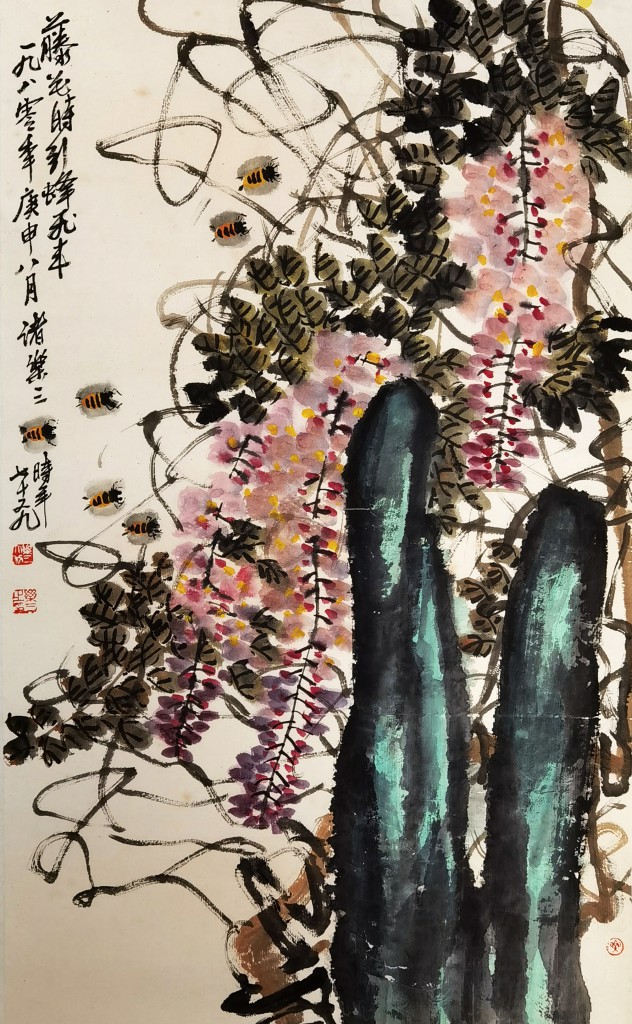 藤花時引蜂飛来
一九八零年庚申八月諸樂三
時年
七十九